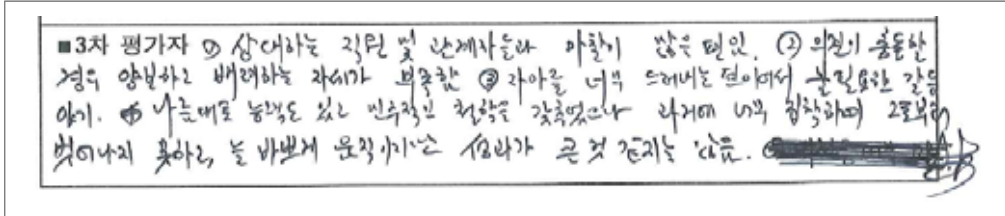 ■3차 평가자 ① 상대하는 직원 및 관계자들과 마찰이 많은 편임. ② 의견이 충돌한
경우 양보하고 배려하는 자세가 부족함 ③ 자아를 너무 드러내는 편이어서 불필요한 갈등
야기. ④ 나름대로 능력도 있고 민주적인 철학을 갖추었으나 과거에 너무 집착하여
벗어나지 못하고, 늘 바쁘게 움직이지만 성과가 큰 것 같지는 않음.